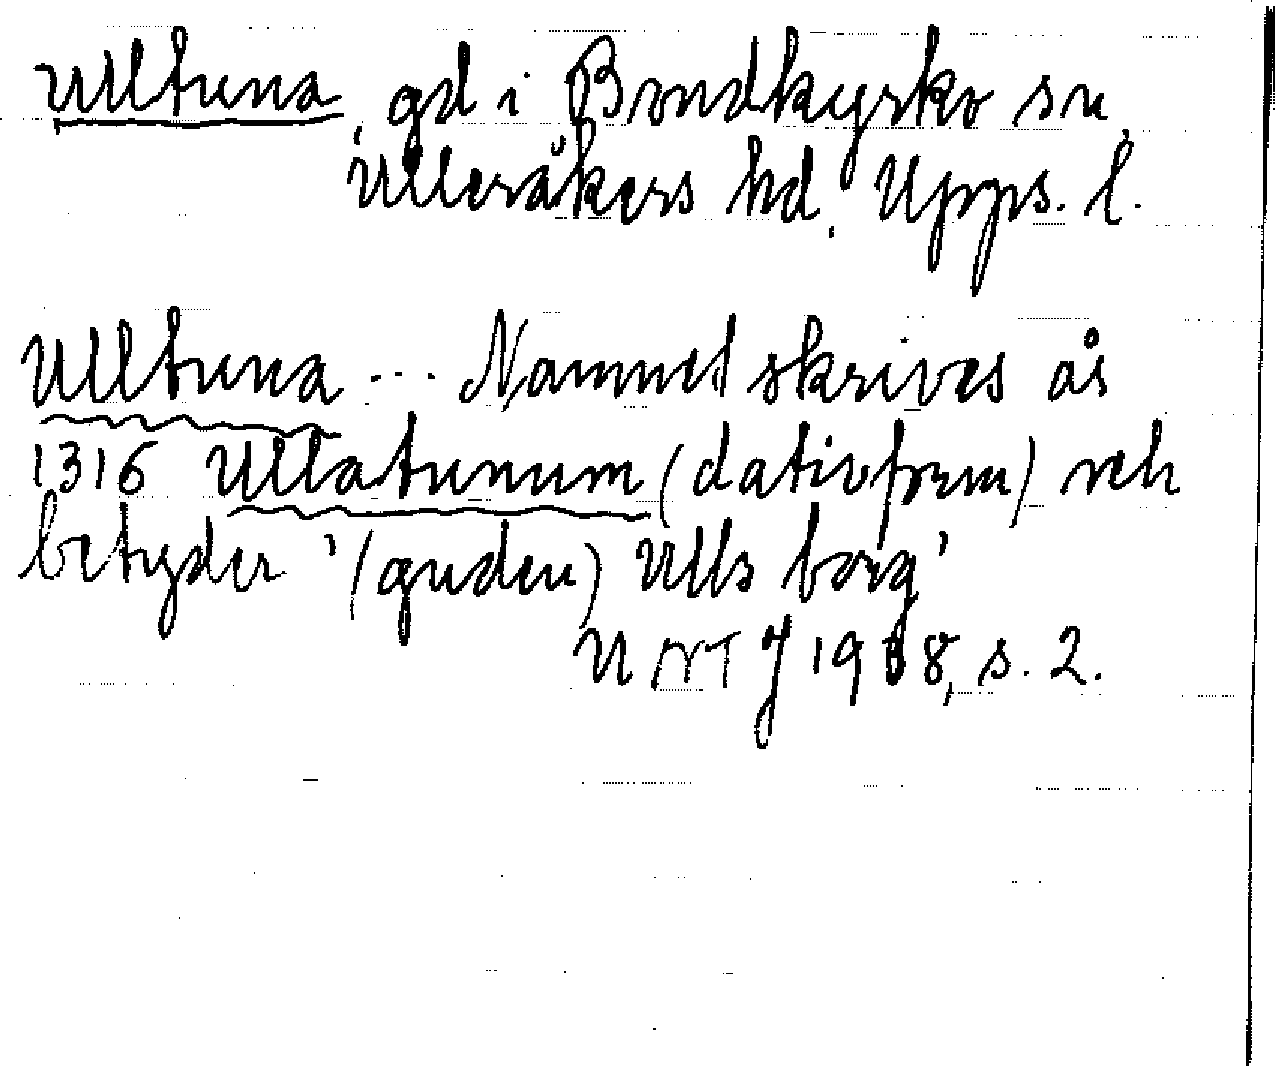 Ultuna, gd i Bondkyrko sn,
Ulleråkers hd. Upps. l.
Ultuna ... Namnet skrives år
1316 Ullatunum (dativform) och
betyder '(guden) Ulls borg'
UNT J 1938, s. 2.